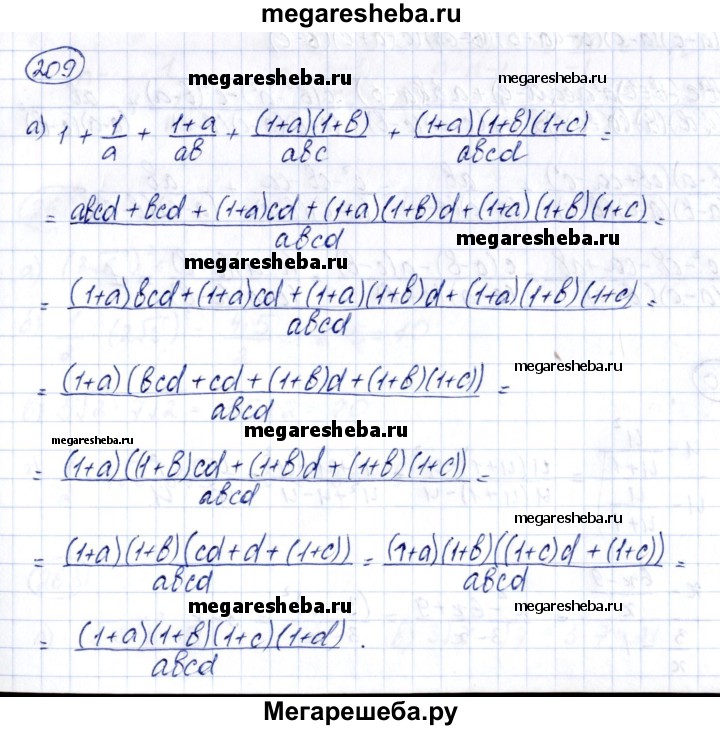 megaresheba.ru
209
megaresheba.ru megaresheba.ru
а) 1 + 1/a + (1+a)/(ab) + ((1+a)(1+b))/(abc) + ((1+a)(1+b)(1+c))/(abcd) =
= (abcd + bcd + (1+a)cd + (1+a)(1+b)d + (1+a)(1+b)(1+c))/(abcd) =
megaresheba.ru
megaresheba.ru
= ((1+a)bcd + (1+a)cd + (1+a)(1+b)d + (1+a)(1+b)(1+c))/(abcd) =
megaresheba.ru
= ((1+a)(bcd + cd + (1+b)d + (1+b)(1+c)))/(abcd) =
megaresheba.ru megaresheba.ru
= ((1+a)((1+b)cd + (1+b)d + (1+b)(1+c)))/(abcd) =
megaresheba.ru
= ((1+a)(1+b)(cd + d + (1+c)))/(abcd) = ((1+a)(1+b)((1+c)d + (1+c)))/(abcd) =
megaresheba.ru megaresheba.ru
= ((1+a)(1+b)(1+c)(1+d))/(abcd).
megaresheba.ru megaresheba.ru
Мегарешеба.ру